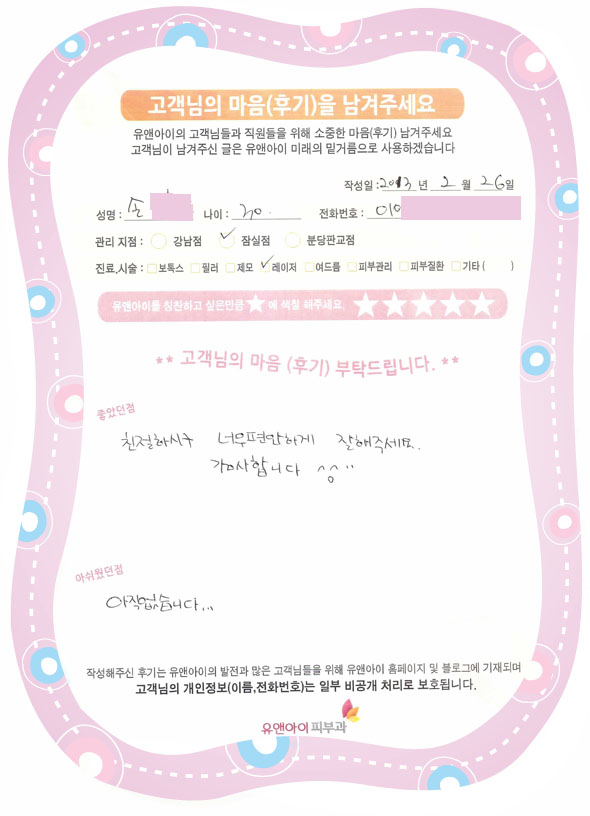 고객님의 마음(후기)을 남겨주세요
유앤아이의 고객님들과 직원들을 위해 소중한 마음(후기) 남겨주세요
고객님이 남겨주신 글은 유앤아이 미래의 밑거름으로 사용하겠습니다
작성일 : 2013 년 2 월 26일
성명 : 손 나이 : 30. 전화번호 : 010
관리 지점 : 강남점 잠실점 분당판교점
진료,시술 : 보톡스 필러 제모 레이저 여드름 피부관리 피부질환 기타 ( )
유앤아이를 칭찬하고 싶은만큼 ★ 에 색칠 해주세요. ★★★★★
** 고객님의 마음 (후기) 부탁드립니다. **
좋았던점
친절하시구 너무편안하게 잘해주세요.
감사합니다 ^^
아쉬웠던점
아직없습니다...
작성해주신 후기는 유앤아이의 발전과 많은 고객님들을 위해 유앤아이 홈페이지 및 블로그에 기재되며
고객님의 개인정보(이름,전화번호)는 일부 비공개 처리로 보호됩니다.
유앤아이 피부과